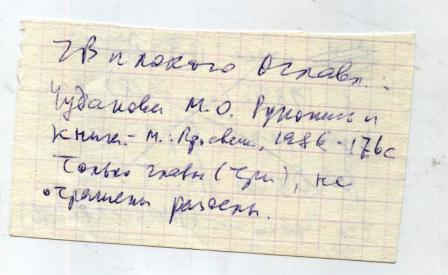 плохого оглавл.:
Чудакова М.О. Рукопись и
книга. - М.: Просвещ., 1986 - 176с
Только главы (три), не
отражены разделы.